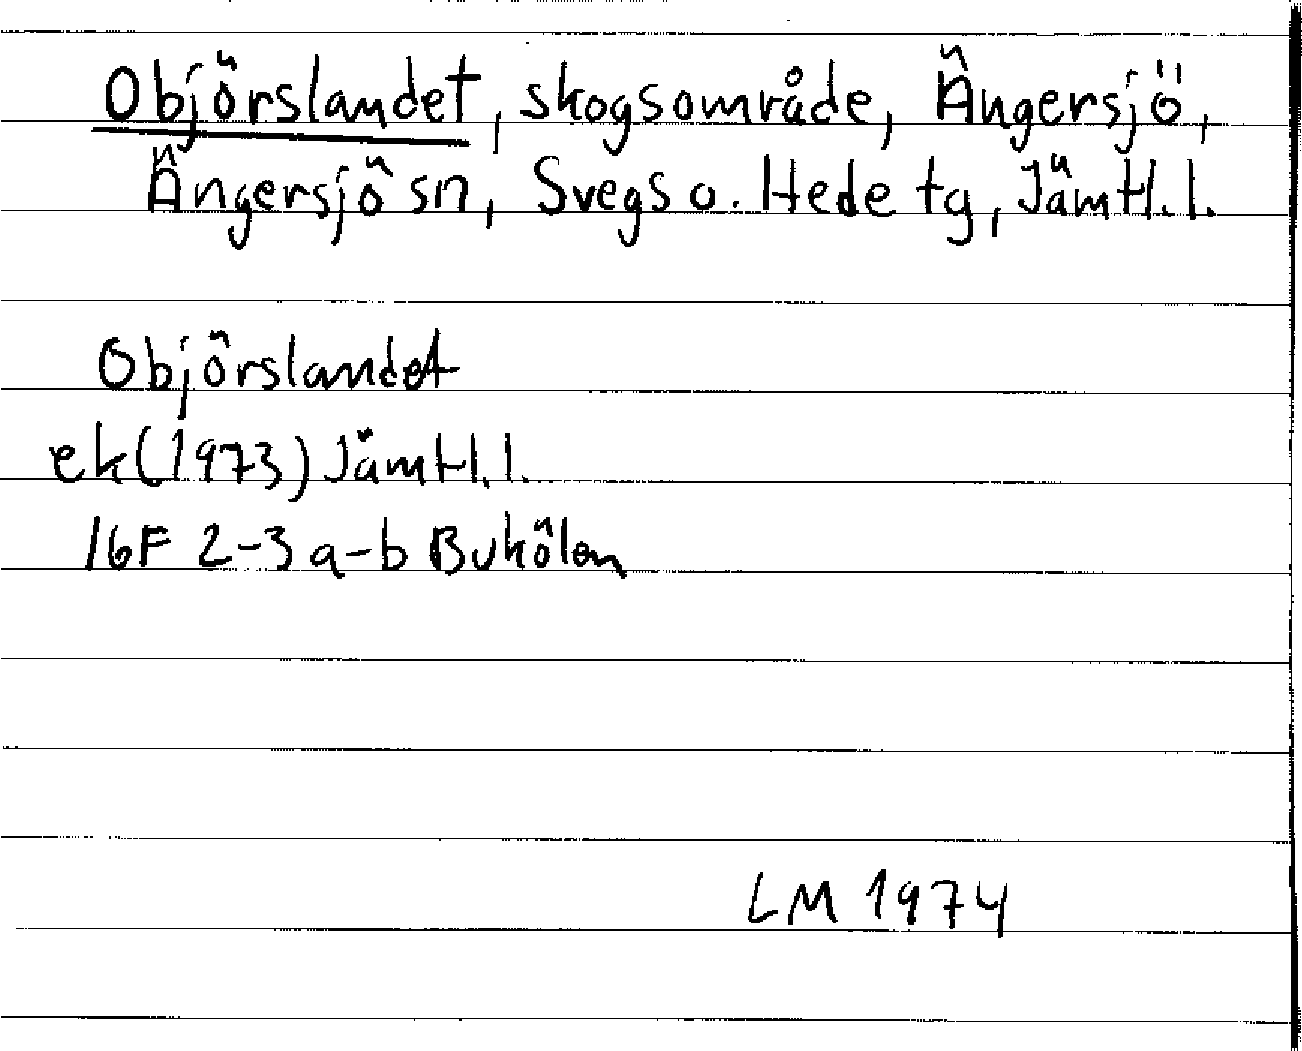 Objörslandet, skogsområde, Ängersjö,
Ängersjö sn, Svegs o. Hede tg, Jämtl. l.
Objörslandet
ek (1973) Jämtl. l.
16F 2-3 a-b Bukölen
LM 1974